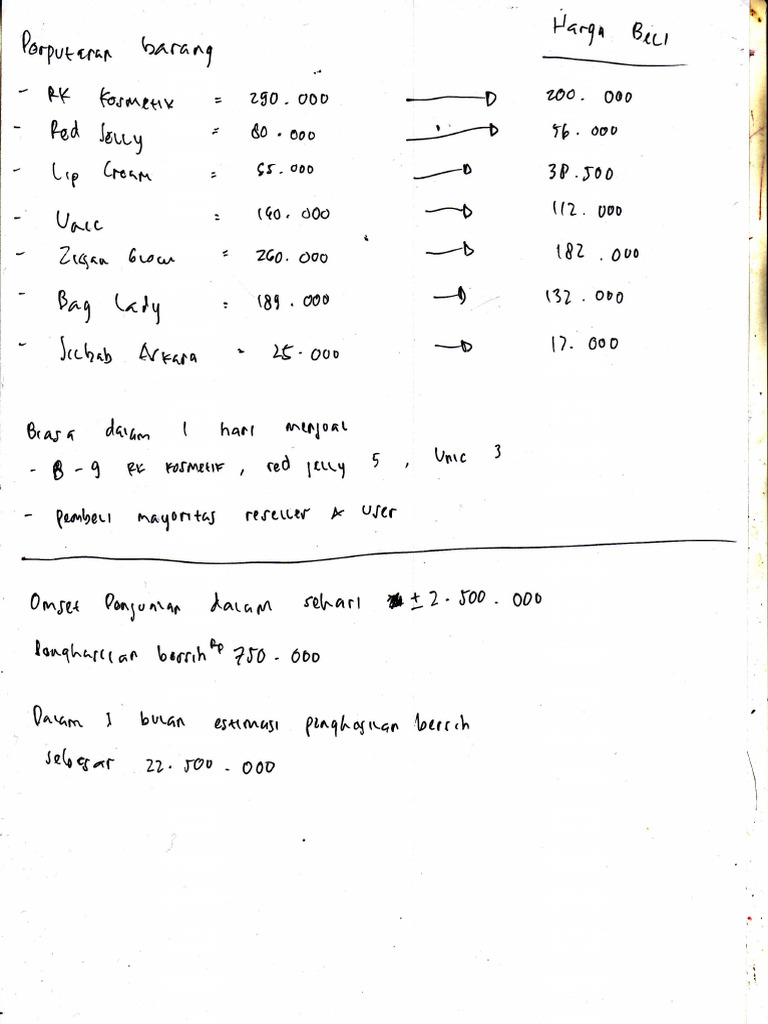 Perputaran barang
Harga Beli
- RK Kosmetik = 290.000 → 200.000
- Red Jelly = 80.000 → 56.000
- Lip Cream = 55.000 → 38.500
- Unic = 160.000 → 112.000
- Zigan Glow = 260.000 → 182.000
- Bag Lady = 189.000 → 132.000
- Jilbab Arkara = 25.000 → 17.000
Biasa dalam 1 hari menjual
- 8-9 RK Kosmetik, red jelly 5, Unic 3
- pembeli mayoritas reseller & user
Omset Penjualan dalam sehari ± 2.500.000
Penghasilan bersih Rp 750.000
Dalam 1 bulan estimasi penghasilan bersih
sebesar 22.500.000